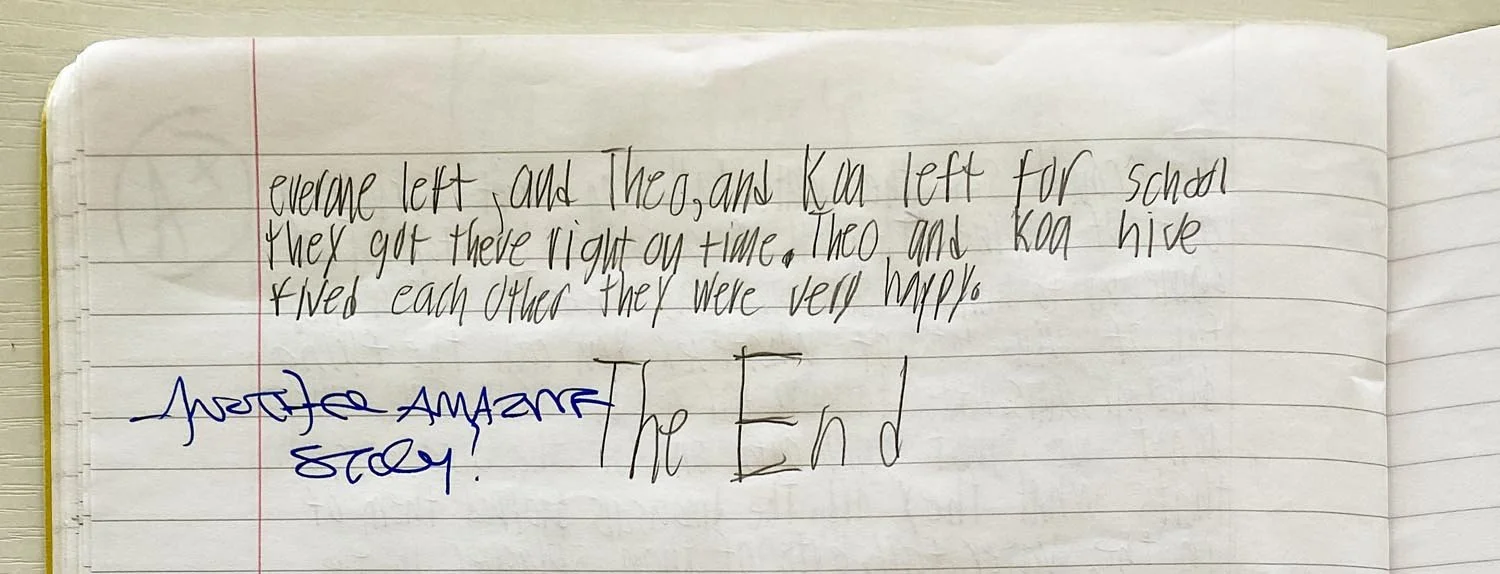 everone left, and Theo, and Koa left for school
they got there right on time. Theo, and Koa hive
fived each other they were very happy.
The End
Another AMAZING
story!